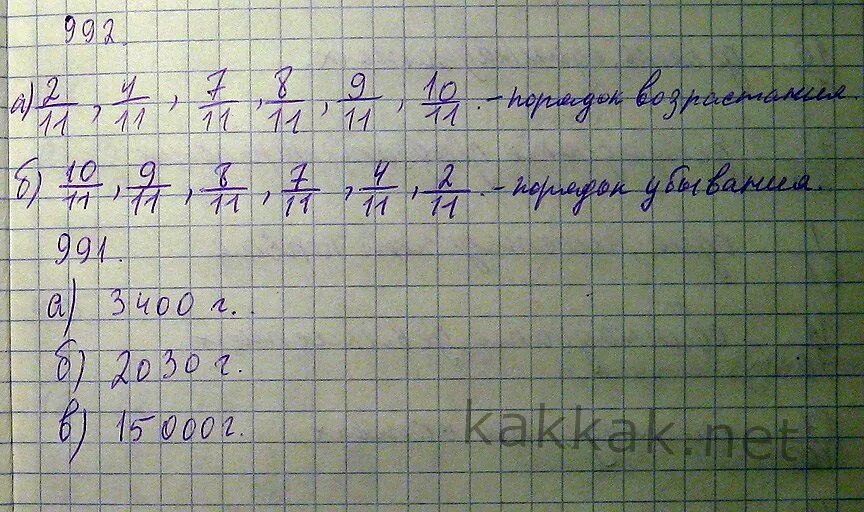 992.
а) 2/11, 4/11, 7/11, 8/11, 9/11, 10/11. - порядок возрастания.
б) 10/11, 9/11, 8/11, 7/11, 4/11, 2/11. - порядок убывания.
991.
а) 3400 г.
б) 2030 г.
в) 15000 г.
kakkak.net